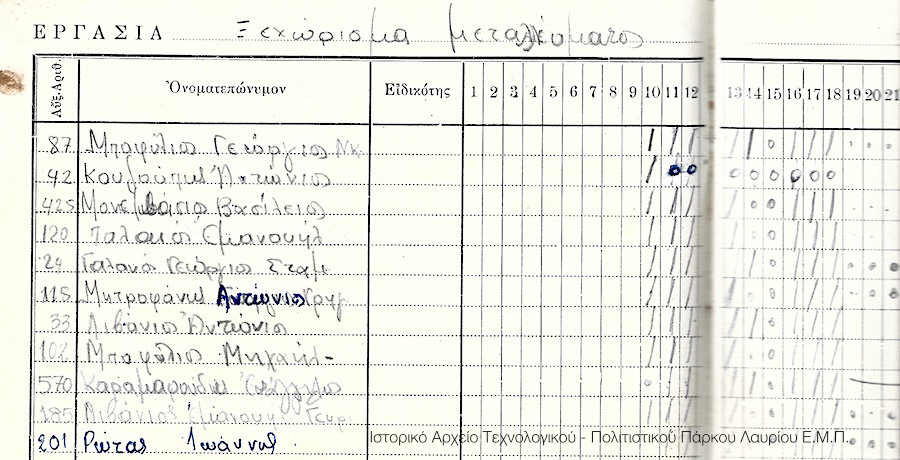 ΕΡΓΑΣΙΑ Ξεχώρισμα μεταλλεύματος
Αὔξ. Ἀριθ. Ὀνοματεπώνυμον Εἰδικότης 1 2 3 4 5 6 7 8 9 10 11 12 13 14 15 16 17 18 19 20 21
87 Μπαφύλιος Γεώργιος Νικ
42 Ἀντώνιος
425 Βασίλειος
120 Γαλανός Εμανουήλ
24 Γαλανός Γεώργιος Σταμ
115 Μητροφάνης Αντώνιος
33 Λιβάνιος Ἀντώνιος
102 Μπαφύλιος Μιχαήλ
570
185 Λιβάνιος Εμανουήλ Γεωρ
201 Ρώτας Ιωάννης
Ιστορικό Αρχείο Τεχνολογικού - Πολιτιστικού Πάρκου Λαυρίου Ε.Μ.Π.